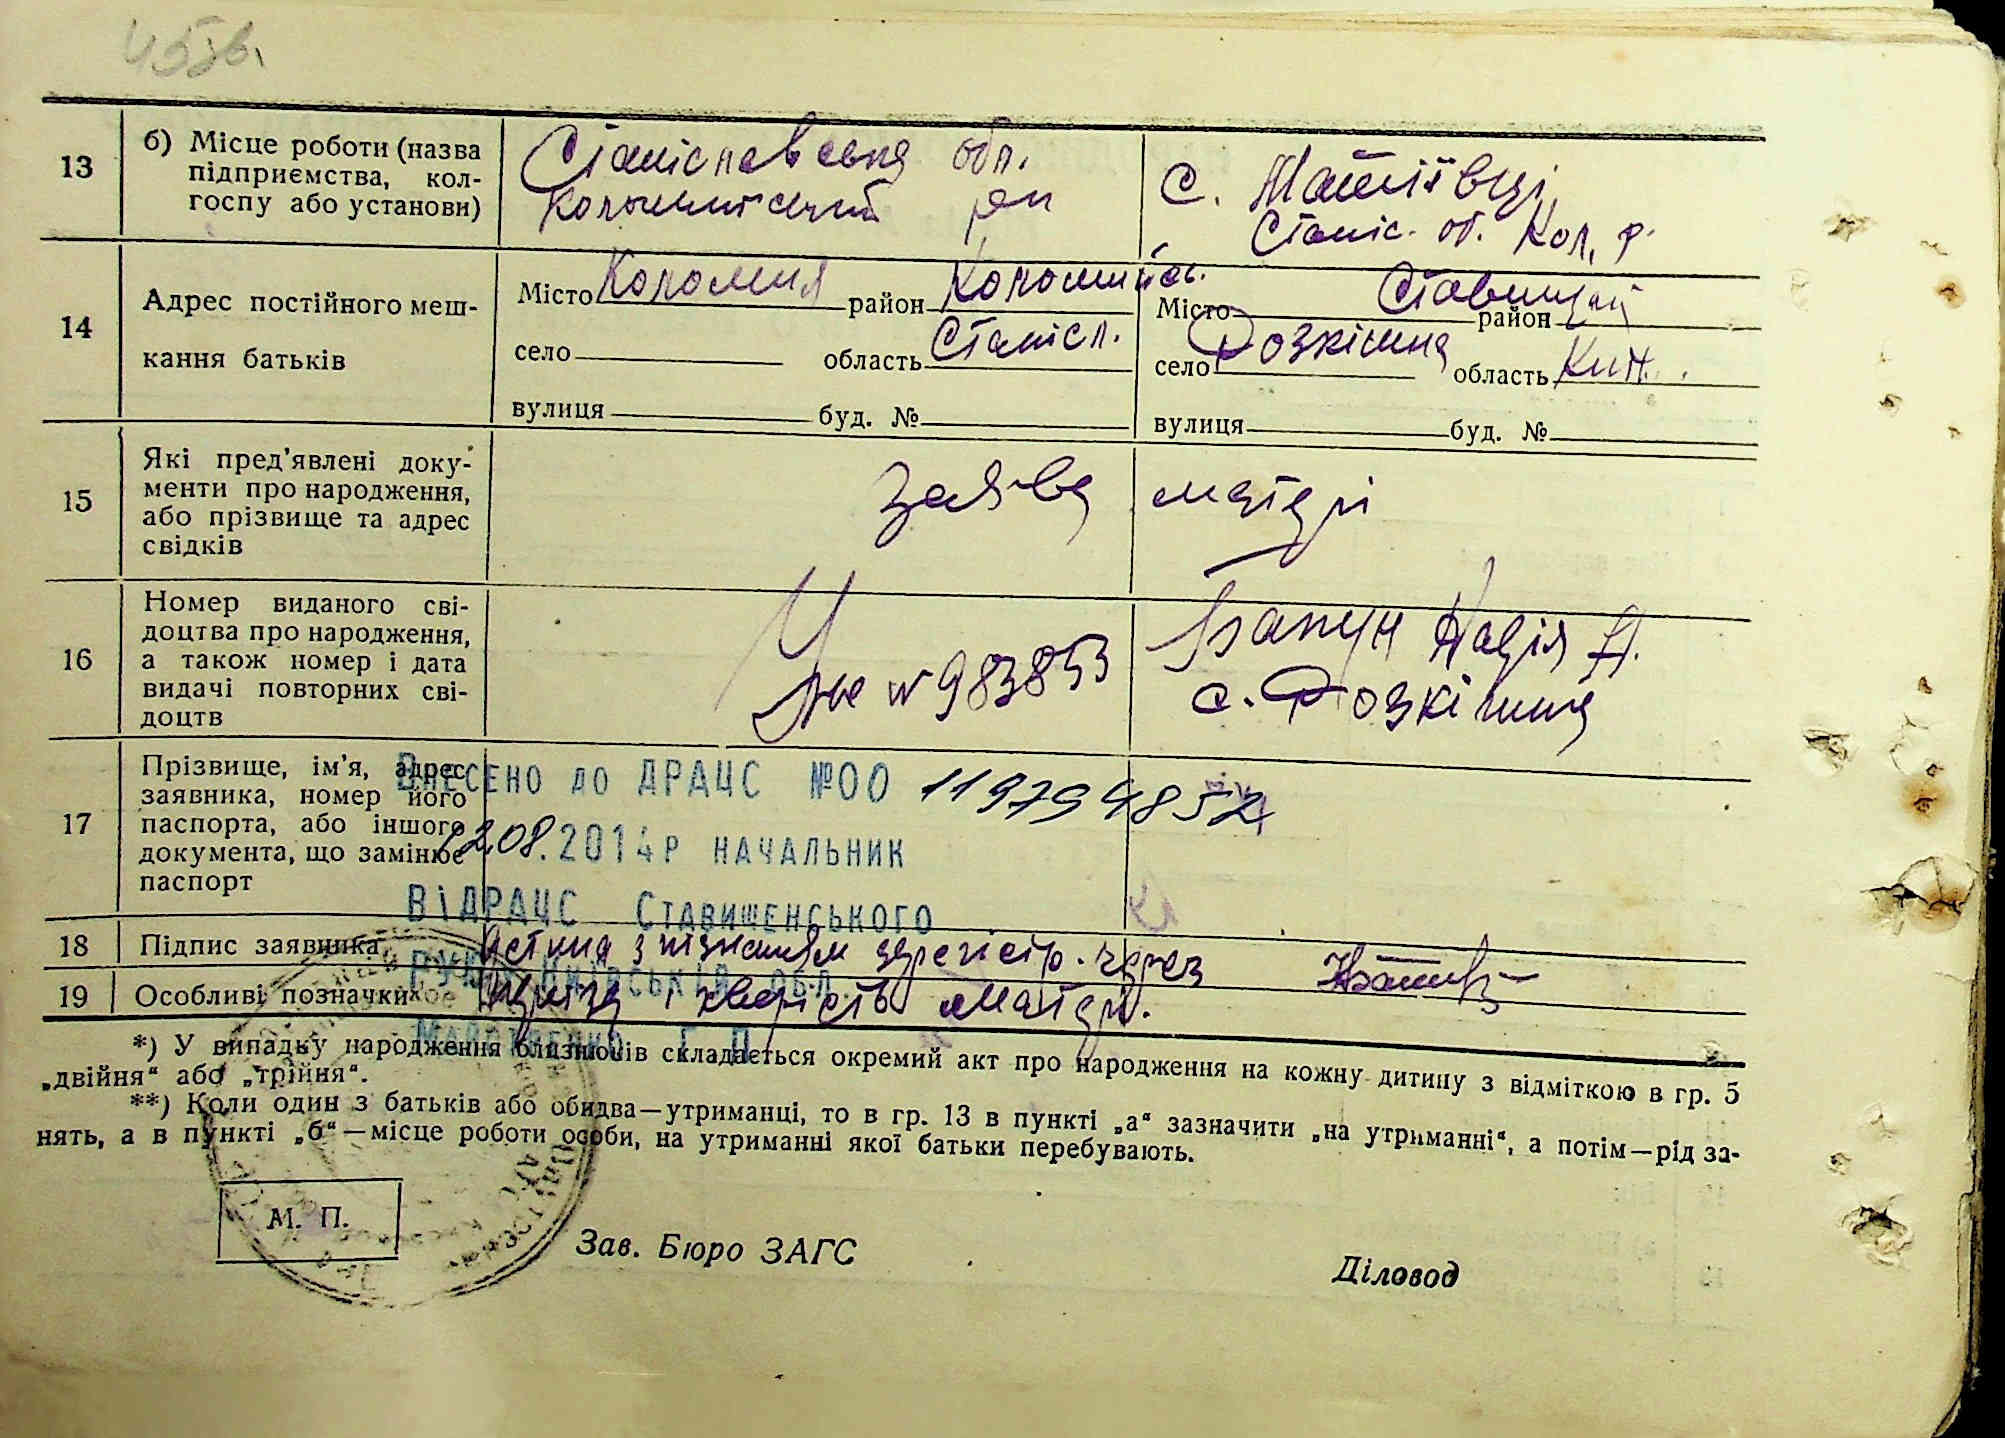 45зв.
13
б) Місце роботи (назва
підприємства, кол-
госпу або установи)
Станіславська обл.
Коломийський р-н
с. Матіївці
Станіс. об. Кол. р.
14
Адрес постійного меш-
кання батьків
Місто Коломия район Коломийсь.
село область Станісл.
вулиця буд. №
Місто район Ставищий
село Розкішна область Киї.
вулиця буд. №
15
Які пред'явлені доку-
менти про народження,
або прізвище та адрес
свідків
заява матері
16
Номер виданого сві-
доцтва про народження,
а також номер і дата
видачі повторних сві-
доцтв
№ 983853
Надія А.
с. Розкішна
17
Прізвище, ім'я, адрес
заявника, номер його
паспорта, або іншого
документа, що замінює
паспорт
Внесено до ДРАЦС №00 119794852
.08.2014р начальник
ВіДРАЦС Ставищенського
РУЮ Київській обл
Г П
18
Підпис заявника
з пізненням зарегістр. через
19
Особливі позначки
матері.
*) У випадку народження близнюків складається окремий акт про народження на кожну дитину з відміткою в гр. 5
„двійня“ або „трійня“.
**) Коли один з батьків або обидва—утриманці, то в гр. 13 в пункті „а“ зазначити „на утриманні“, а потім—рід за-
нять, а в пункті „б“—місце роботи особи, на утриманні якої батьки перебувають.
М. П.
Зав. Бюро ЗАГС
Діловод